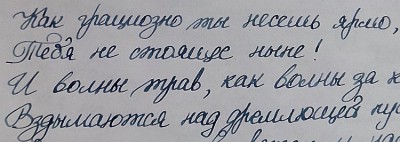 Как грациозно ты несешь ярмо,
Тебя не стоящее ныне!
И волны трав, как волны за
Вздымаются над дремлющей